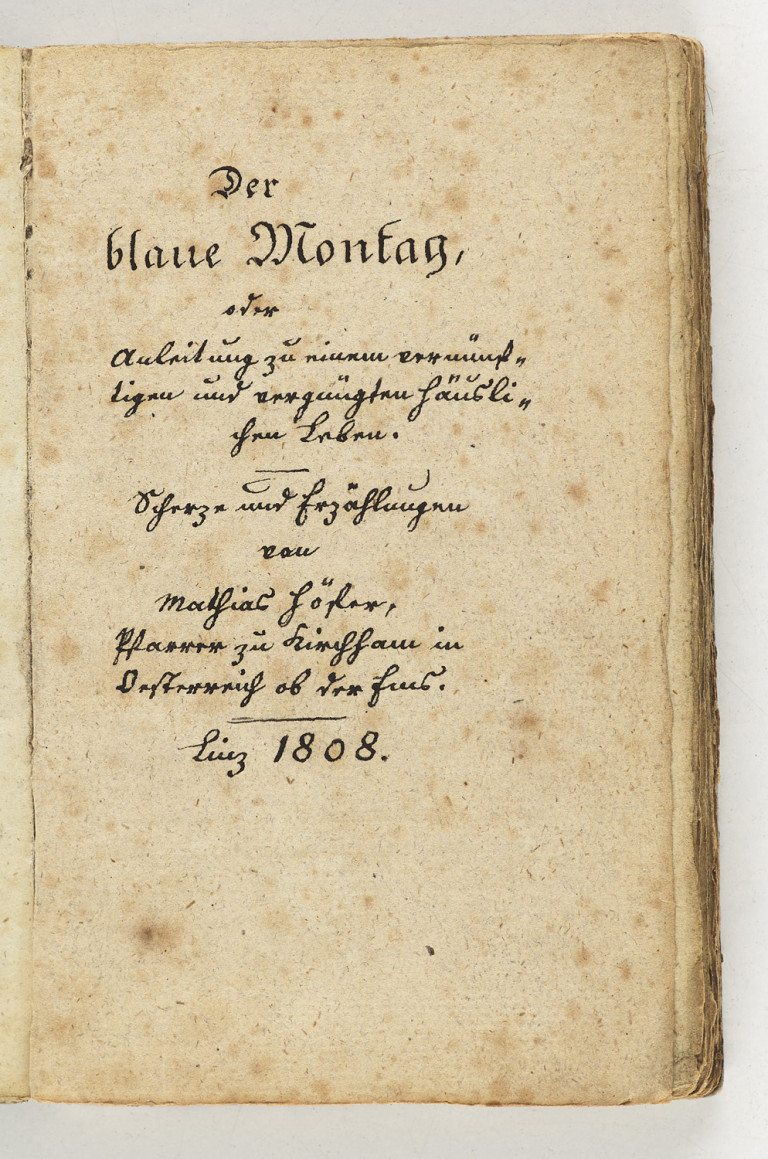 Der
blaue Montag,
oder
Anleitung zu einem vernünf„
tigen und vergnügten häusli„
chen Leben.
Scherze und Erzählungen
von
Mathias Höfer,
Pfarrer zu Kirchham in
Oesterreich ob der Ens.
Linz 1808.